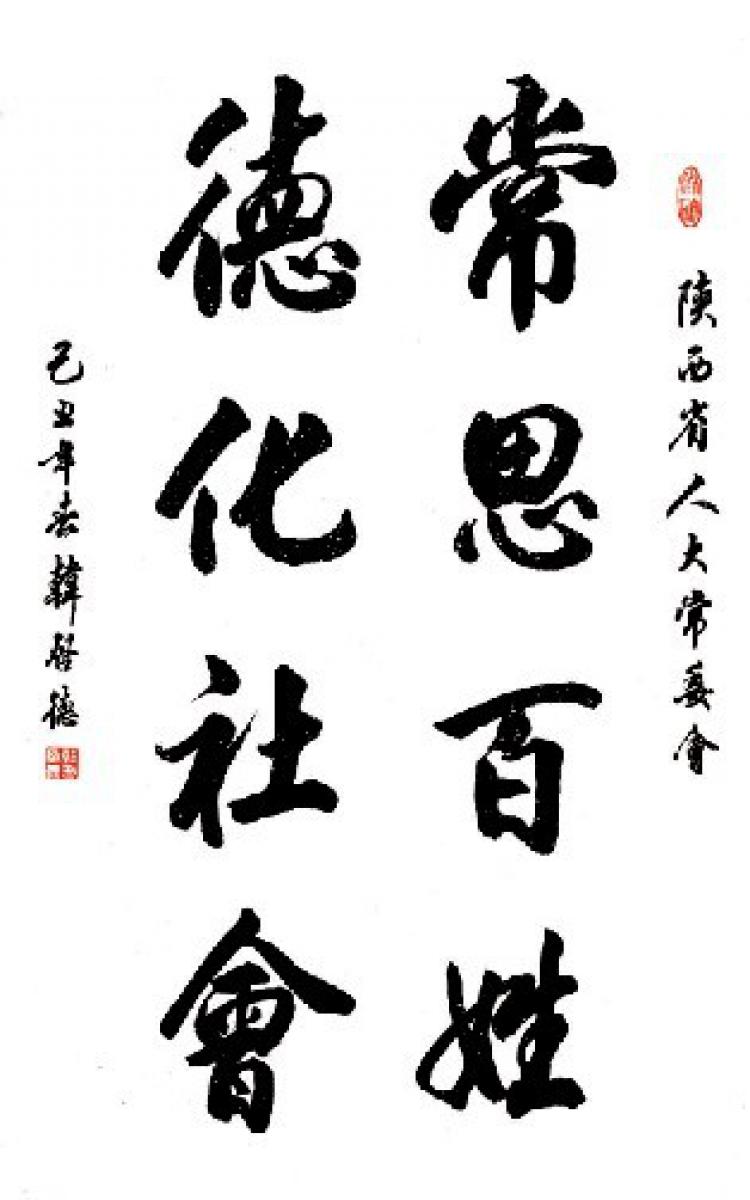 陝西省人大常委會
常思百姓
德化社會
己丑年春韓啓德